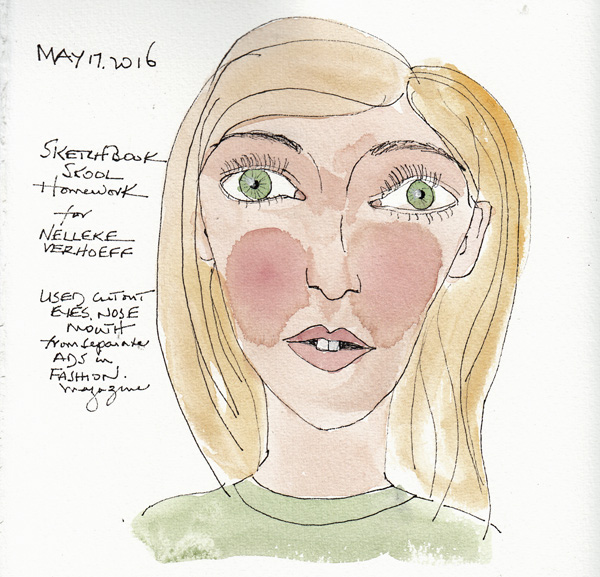 MAY 17. 2016
SKETCHBOOK
SKOOL
Homework
for
NELLEKE
VERHOEFF
USED cutout
EYES, NOSE
MOUTH
from separate
ADS in
FASHION.
magazine